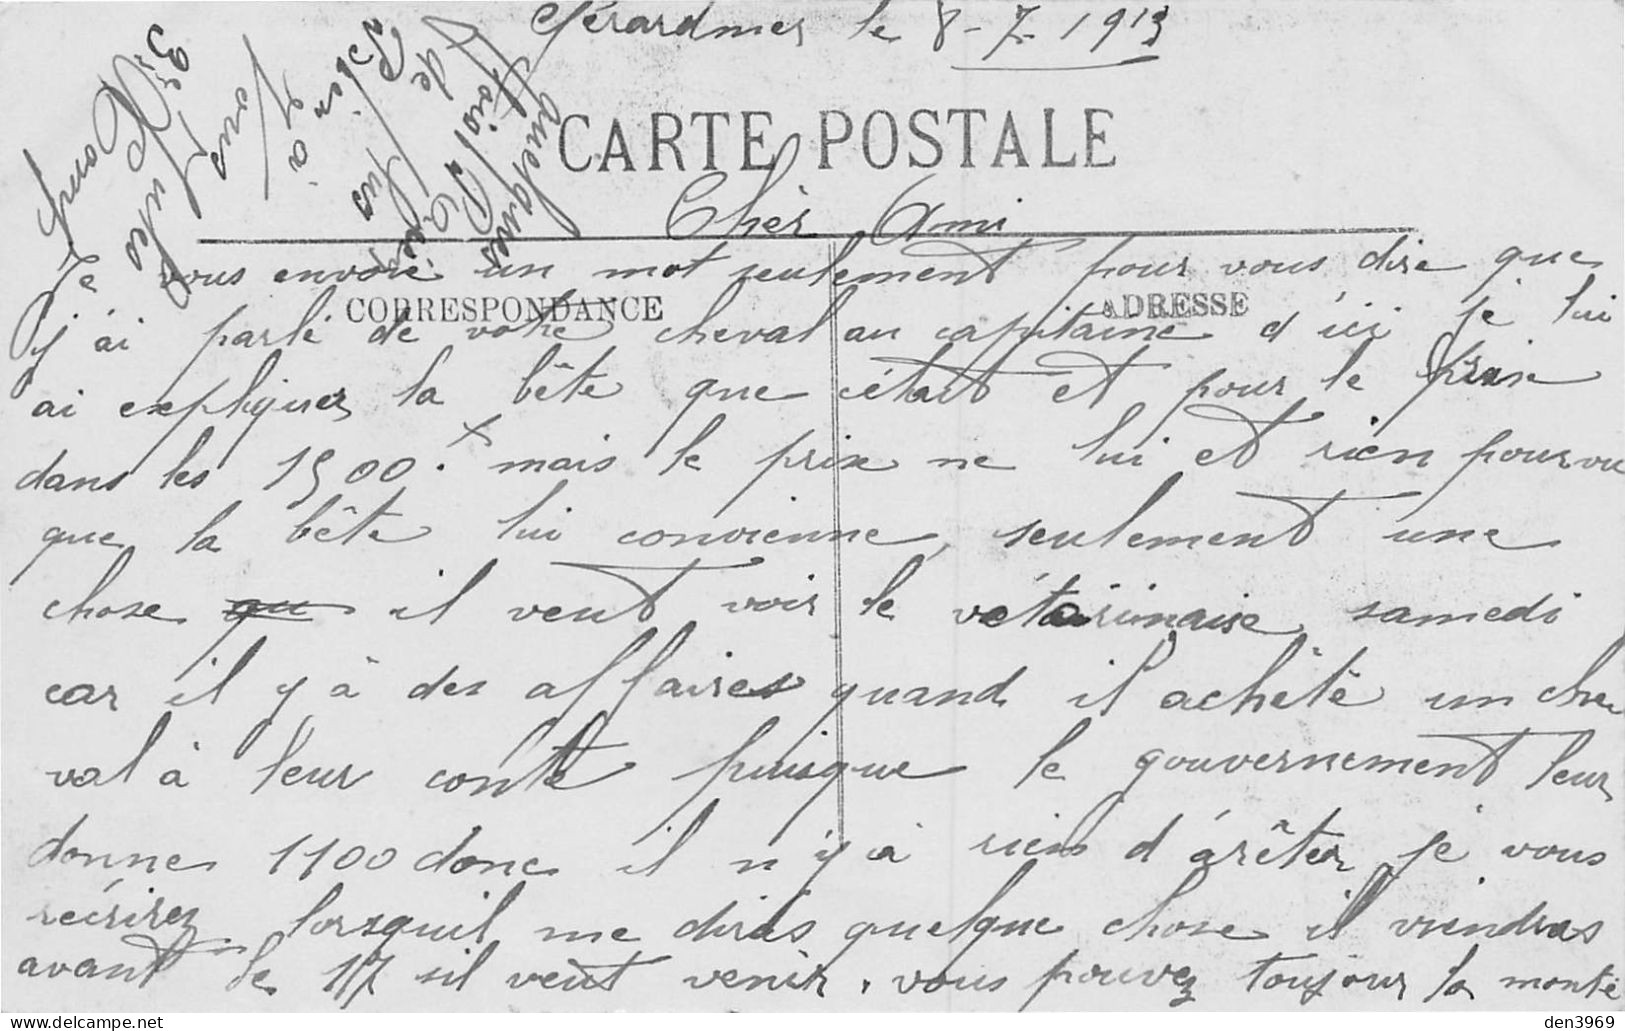 Gérardmer le 8-7-1913
CARTE POSTALE
Cher Ami
CORRESPONDANCE
ADRESSE
Je vous envoie un mot seulement pour vous dire que
j'ai parlé de votre cheval au capitaine d'ici je lui
ai expliquer la bête que c'était et pour le prix
dans les 1500.f mais le prix ne lui et rien pourvu
que la bête lui convienne, seulement une
chose qu il veut voir le vétairinaire samedi
car il y à des affaires quand il achète un che
val à leur conte puisque le gouvernement leur
donne 1100 donc il n'y à rien d'arêter je vous
récrirez lorsquil me diras quelque chose il viendras
avant le 17 sil veut venir, vous pouvez toujour la monté
quelques
de plus
Bien à
vous
den3969